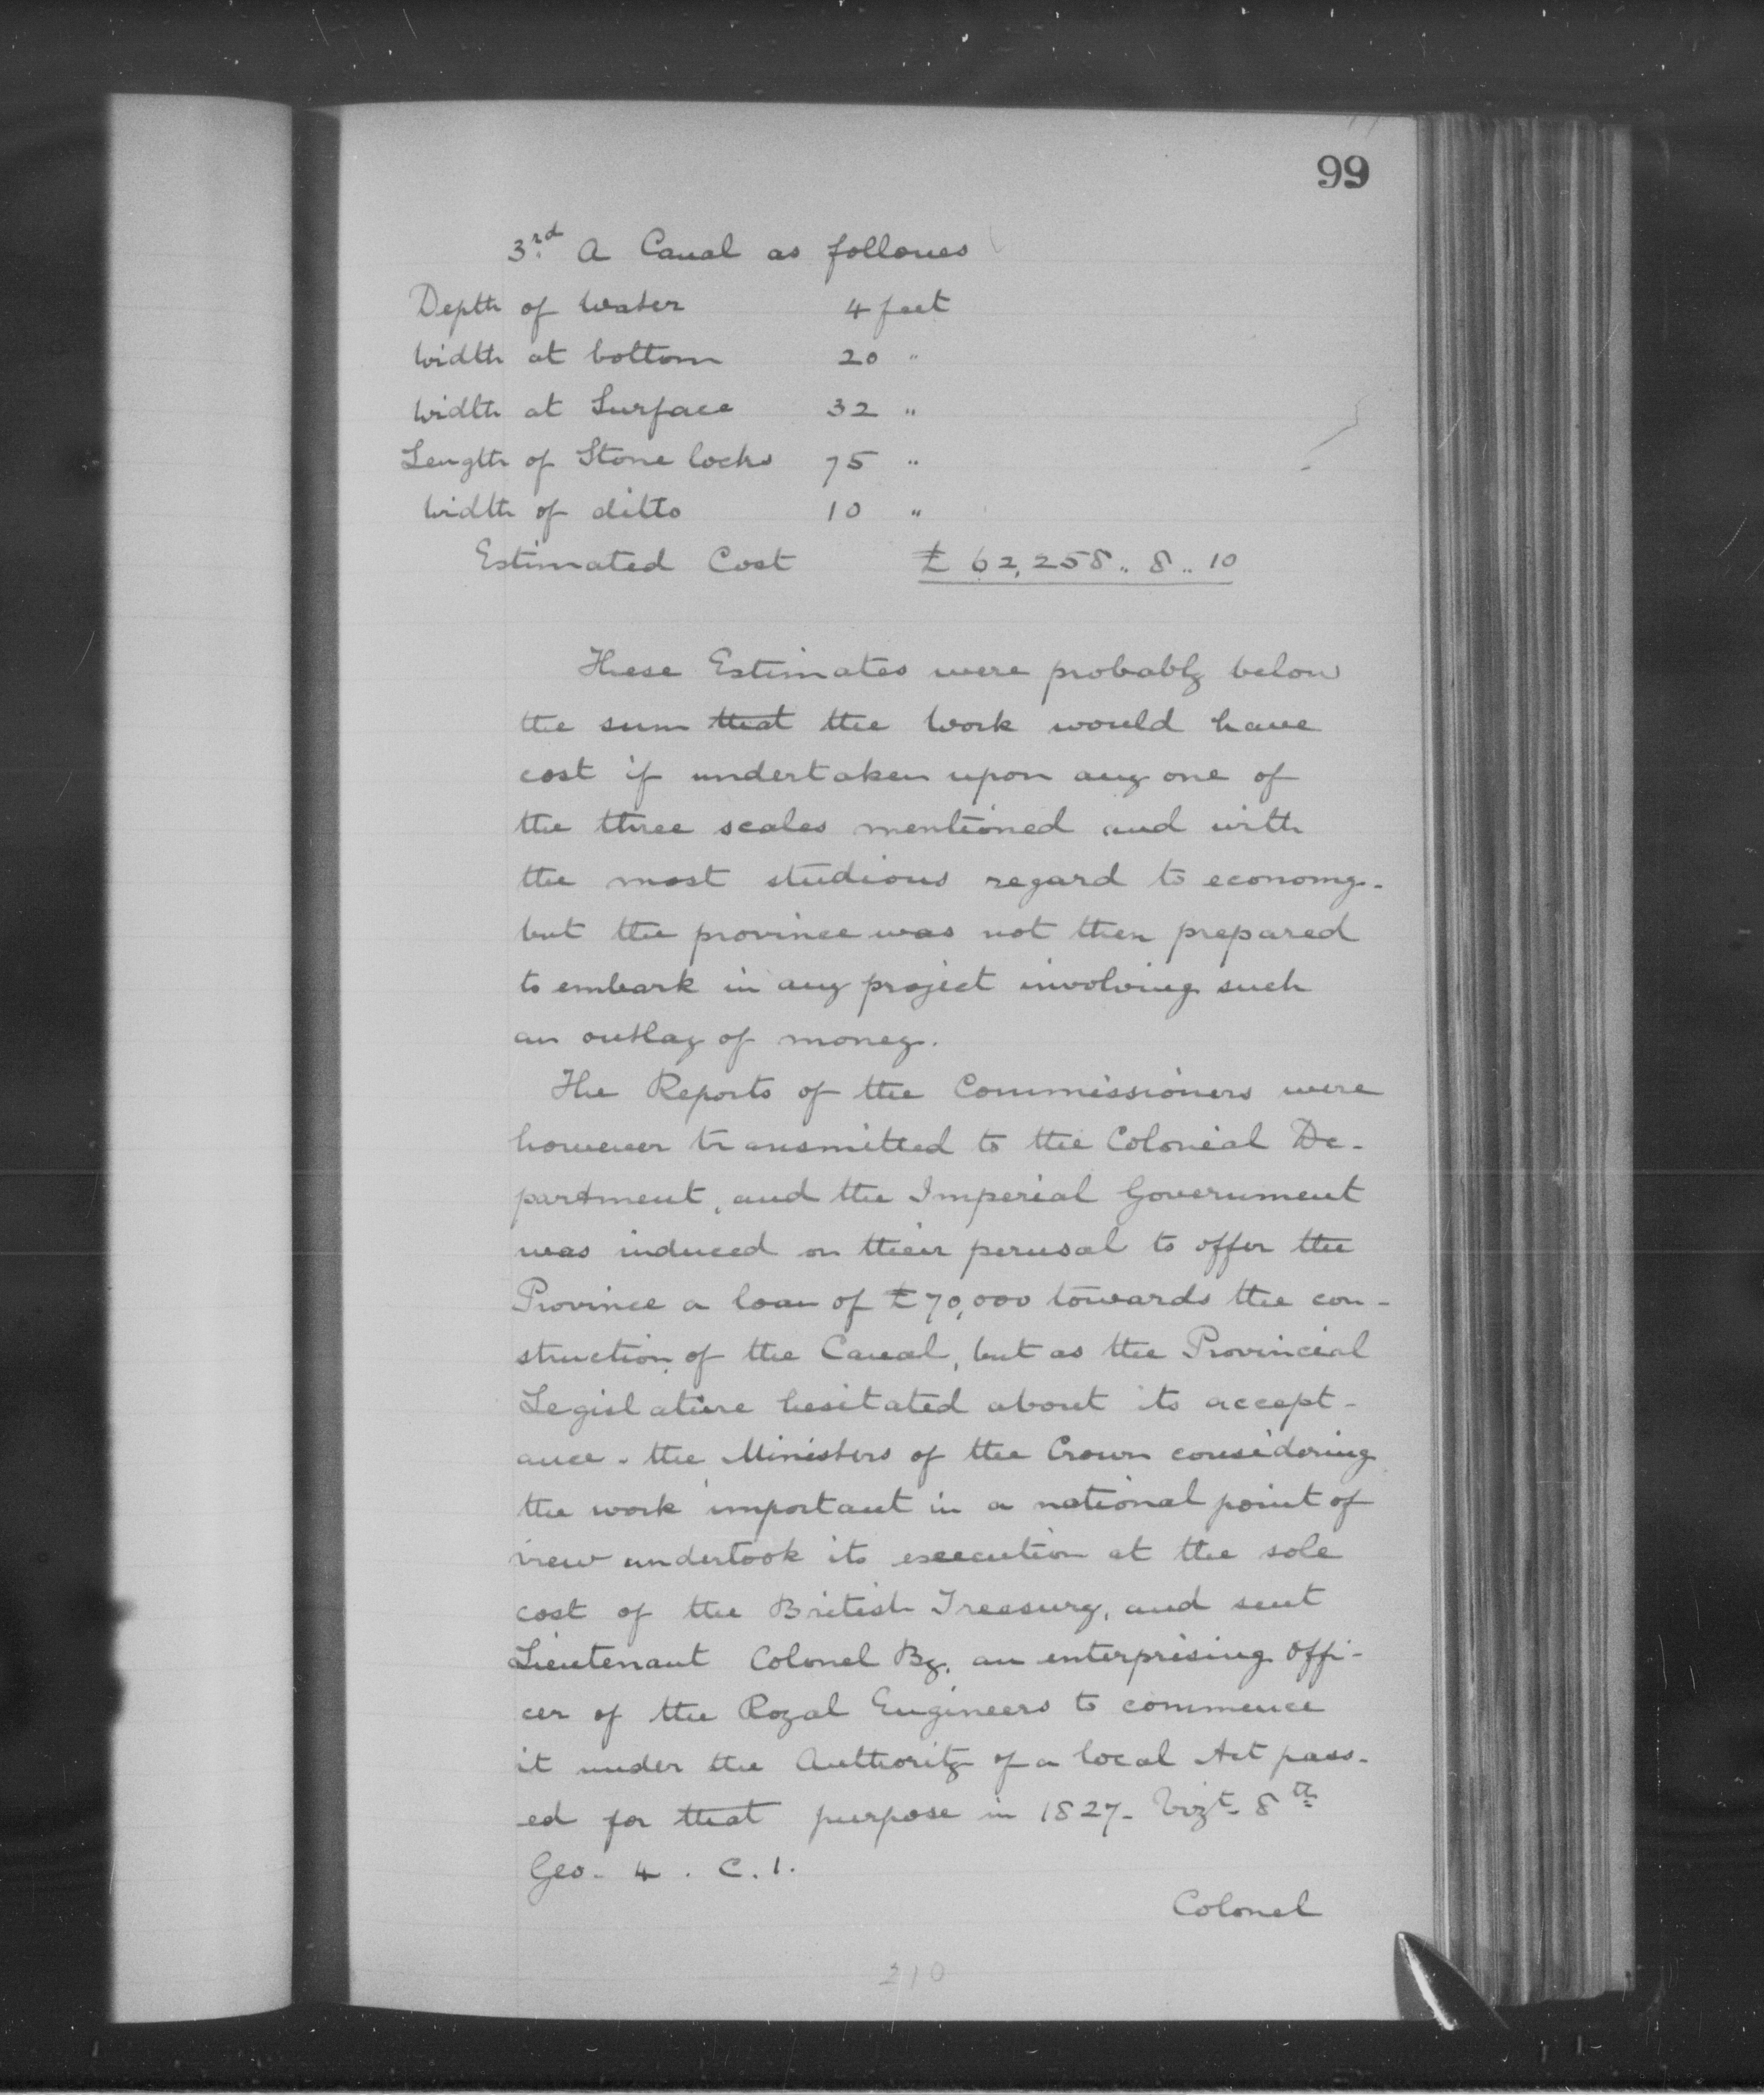 99
3rd. A Canal as follows
Depth of Water 4 feet
Width at bottom 20 "
Width at Surface 32 "
Length of Stone locks 75 "
Width of ditto 10 "
Estimated Cost £ 62,258.. 8.. 10
These Estimates were probably below
the sum that the Work would have
cost if undertaken upon any one of
the three scales mentioned and with
the most studious regard to economy-
but the province was not then prepared
to embark in any project involving such
an outlay of money.
The Reports of the Commissioners were
however transmitted to the Colonial De-
partment, and the Imperial Government
was induced on their perusal to offer the
Province a loan of £70,000 towards the con-
struction of the Canal, but as the Provincial
Legislature hesitated about its accept-
ance - the Ministers of the Crown considering
the work important in a national point of
view undertook its execution at the sole
cost of the British Treasury, and sent
Lieutenant Colonel By, an enterprising Offi-
cer of the Royal Engineers to commence
it under the Authority of a local Act pass-
ed for that purpose in 1827- Vizt- 8th
Geo- 4 . C. 1.
Colonel
210